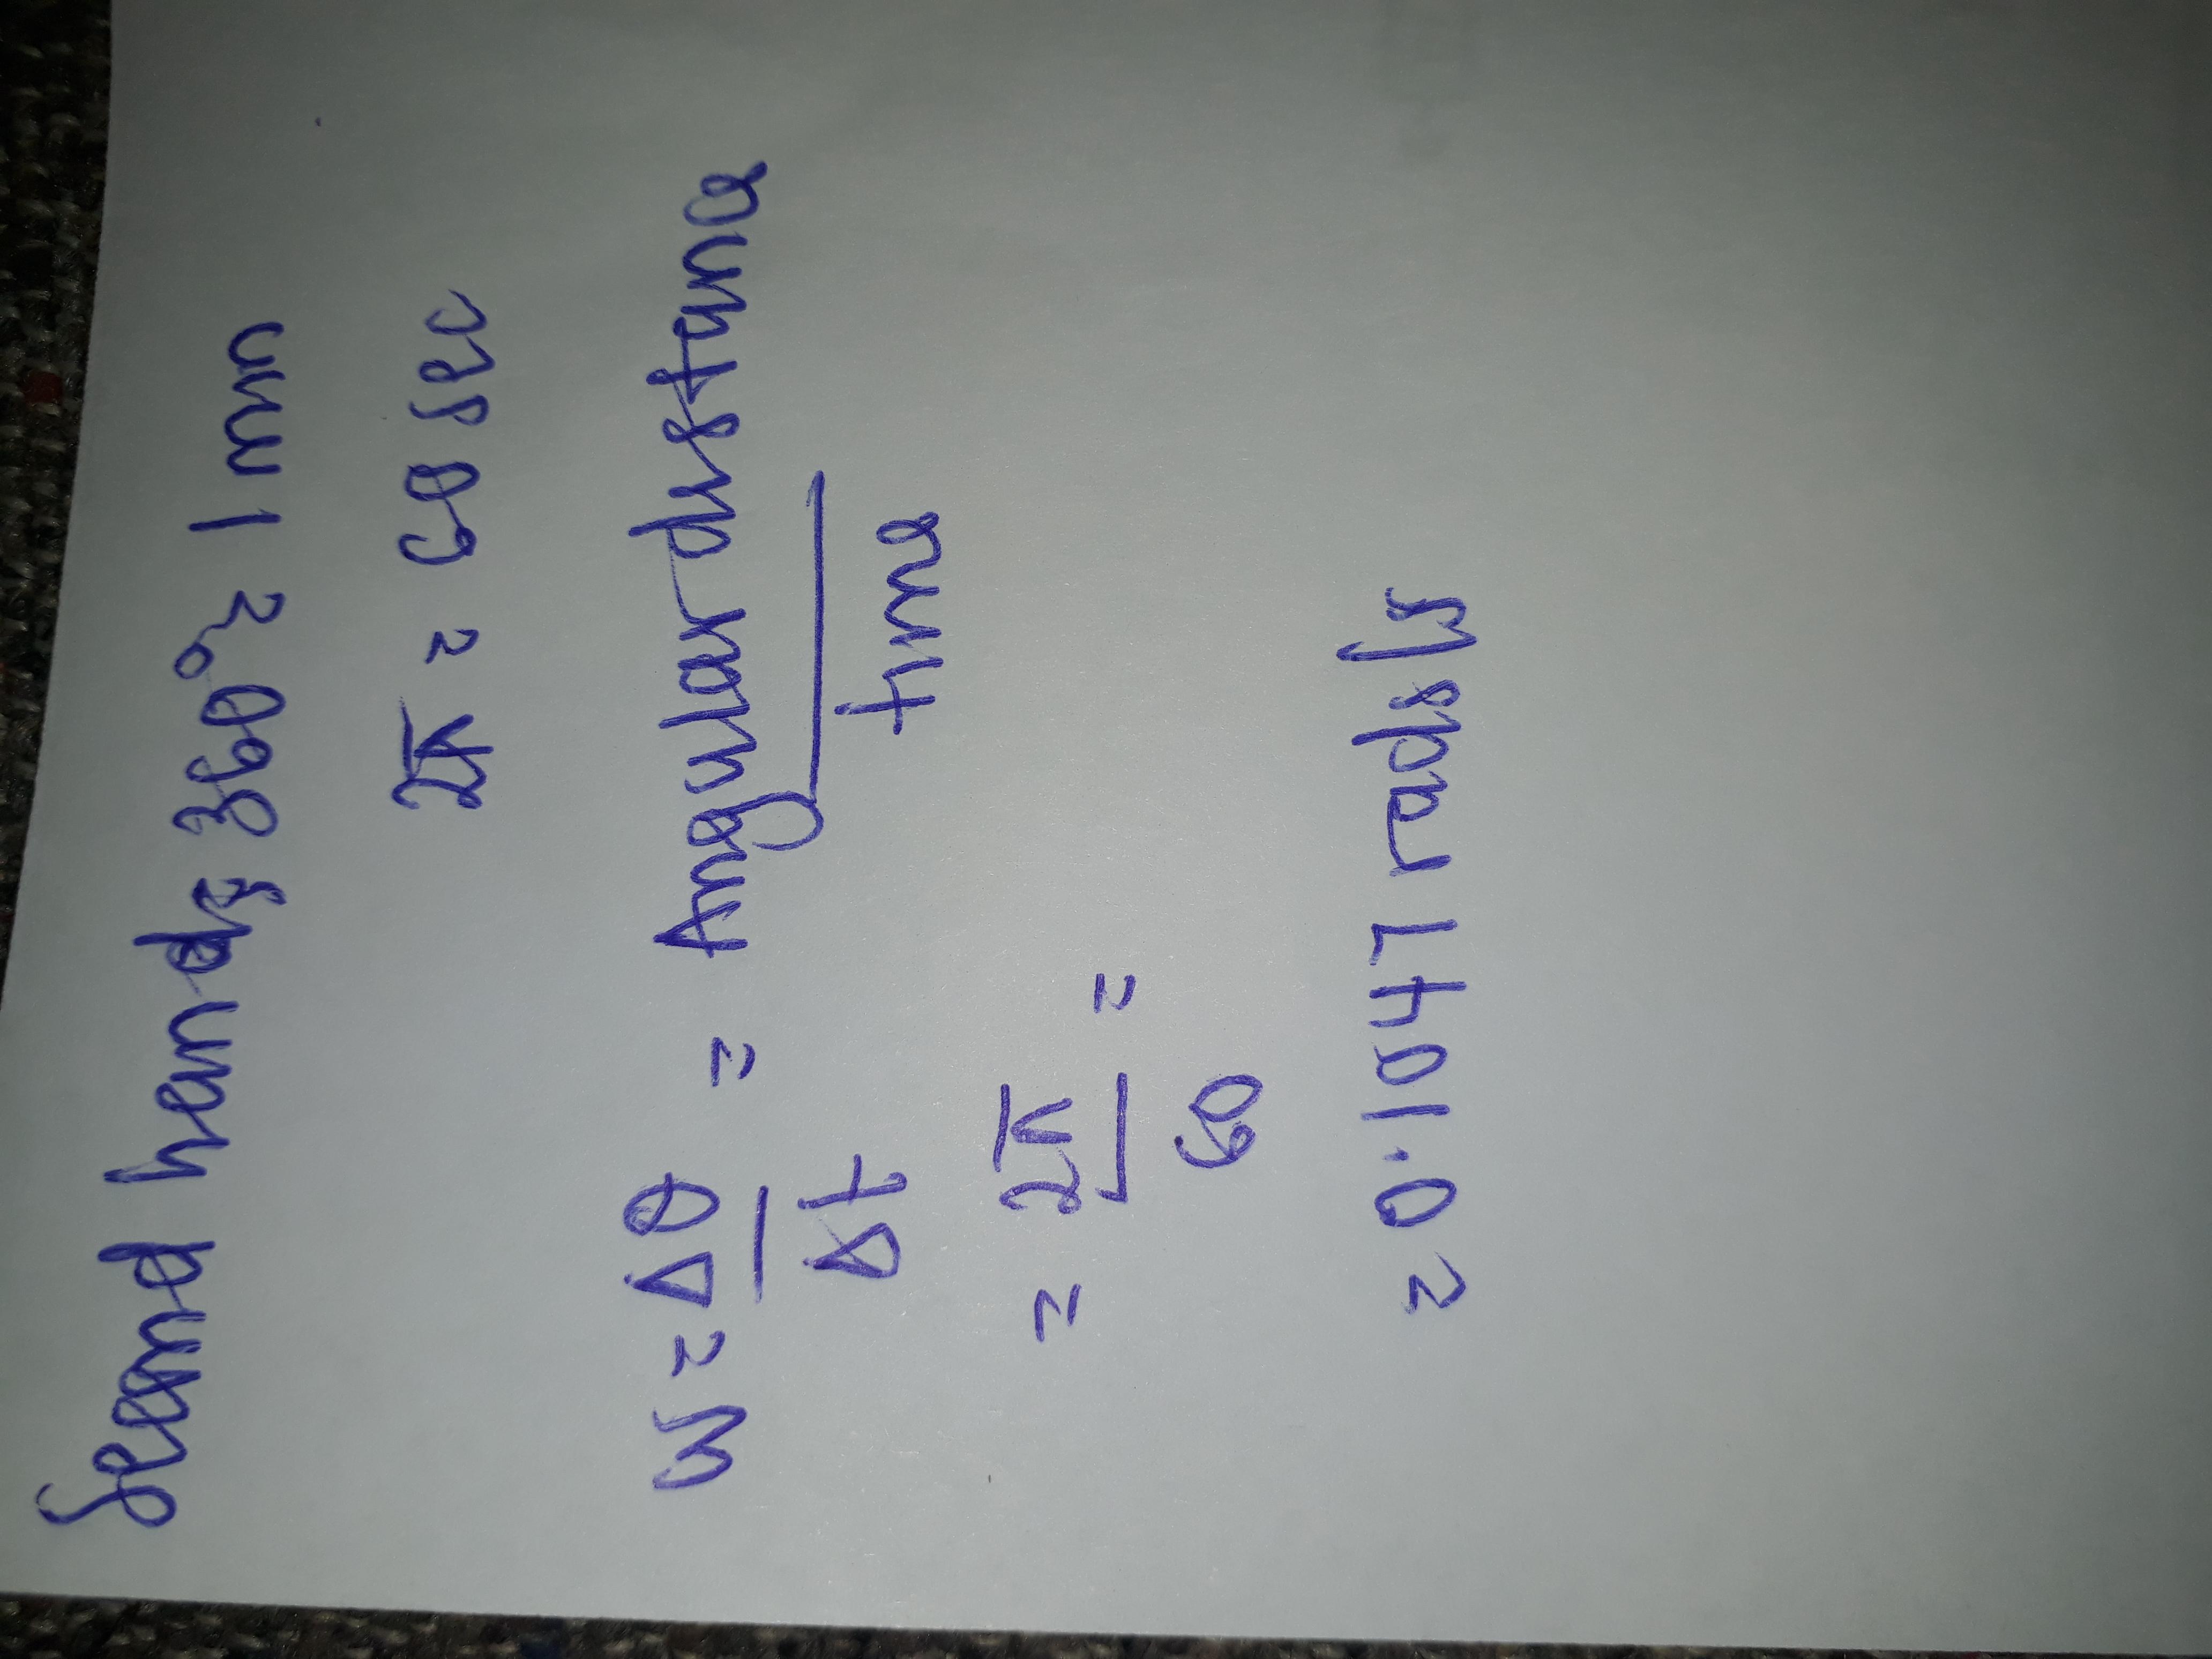 Second hand; 360° = 1 min
2π = 60 sec
ω = Δθ = Angular distance
Δt time
= 2π =
60
= 0.1047 rads/s